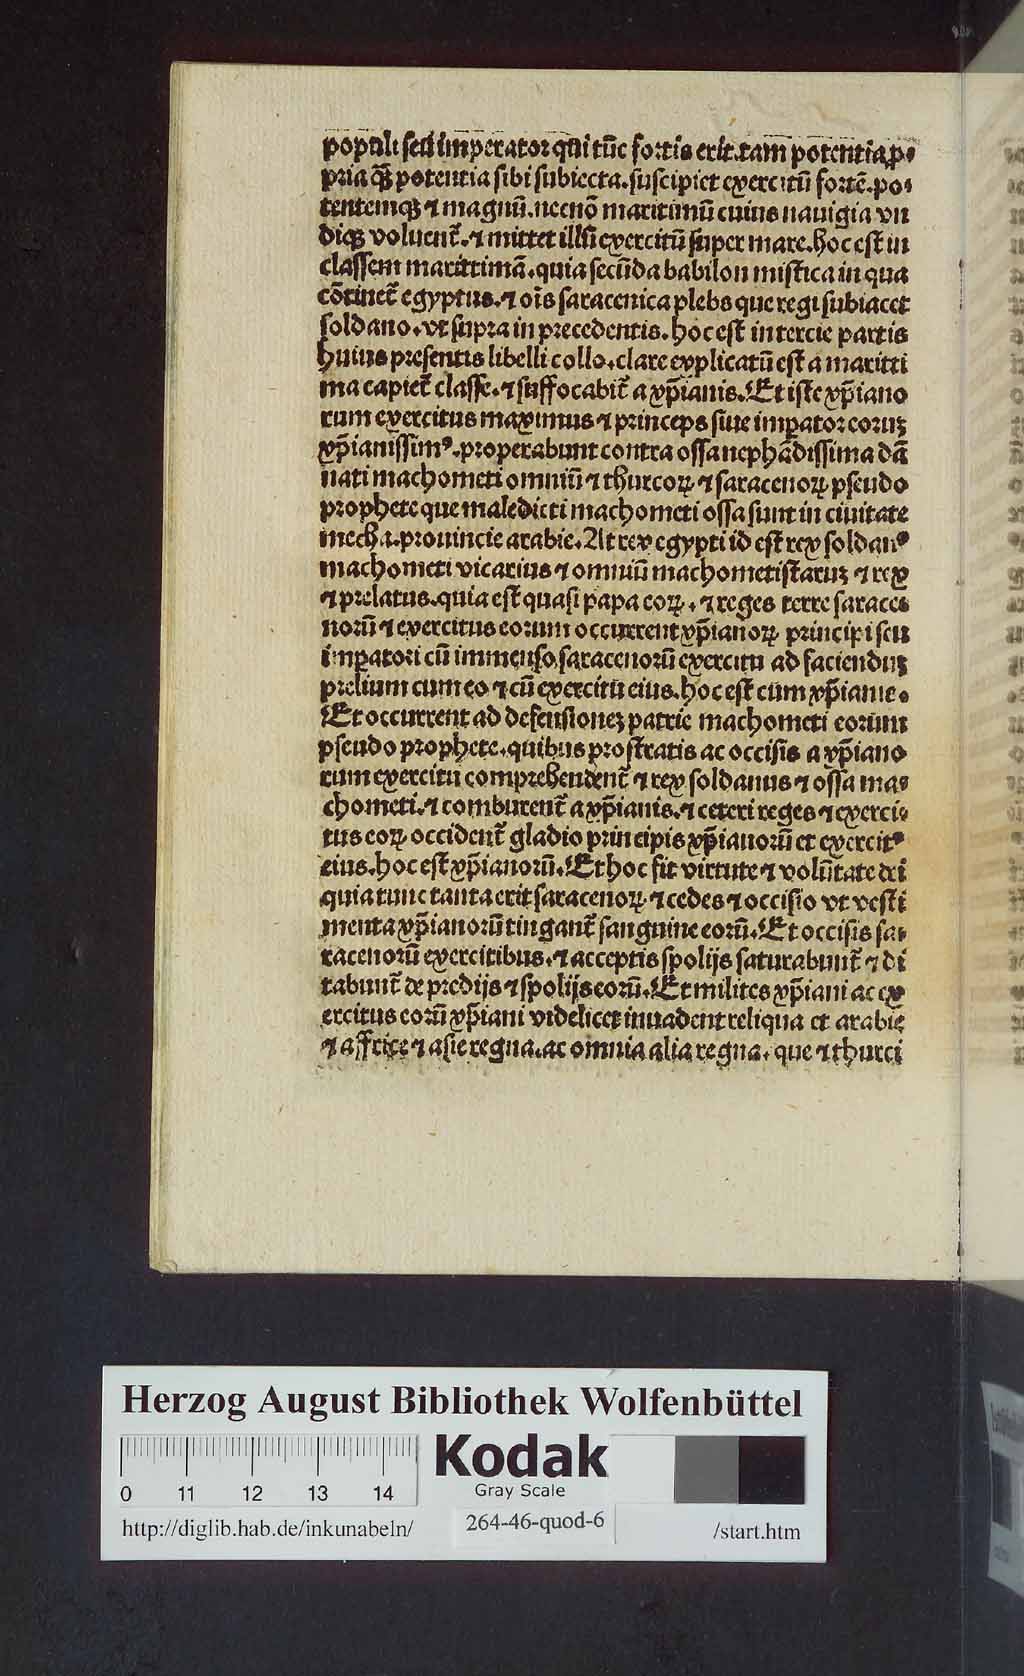 populi seu imperator qui tūc fortis erit.tam potentia ꝓ⸗
pria qȝ potentia sibi subiecta.suscipiet exercitū fortē.po⸗
tentemqȝ ⁊ magnū.necnō maritimū cuius nauigia vn
diqȝ voluent᷑.⁊ mittet illū exercitū super mare.hoc est in
classem marittimā.quia secūda babilon mistica in qua
cōtinet᷑ egyptus.⁊ oīs saracenica plebs que regi subiacet
soldano.vt supra in precedentis.hoc est in tercie partis
huius presentis libelli collo.clare explicatū est a maritti
ma capiet᷑ classe.⁊ suffocabit᷑ a xp̄ianis.Et iste xp̄iano
rum exercitus maximus ⁊ princeps siue imꝑator eoruȝ
xp̄ianissimꝰ.properabunt contra ossa nephādissima dā
nati machometi omniū ⁊ thurcoꝝ ⁊ saracenoꝝ pseudo
prophete que maledicti machometi ossa sunt in ciuitate
mecha.prouincie arabie.At rex egypti id est rex soldanꝰ
machometi vicarius ⁊ omniū machometistaruȝ ⁊ rex
⁊ prelatus.quia est quasi papa eoꝝ.⁊ reges terre sarace⸗
norū ⁊ exercitus eorum occurrent xp̄ianoꝝ principi seu
imꝑatori cū immenso saracenorū exercitu ad facienduȝ
prelium cum eo ⁊ cū exercitu eius.hoc est cum xp̄ianis.
Et occurrent ad defensioneȝ patrie machometi eorum
pseudo prophete.quibus prostratis ac occisis a xp̄iano
rum exercitu comprehendent᷑ ⁊ rex soldanus ⁊ ossa ma⸗
chometi.⁊ comburent᷑ a xp̄ianis.⁊ ceteri reges ⁊ exerci⸗
tus eoꝝ occident᷑ gladio principis xp̄ianorū et exercitꝰ
eius.hoc est xp̄ianorū.Et hoc fit virtute ⁊ volūtate dei
quia tunc tanta erit saracenoꝝ ⁊ cedes ⁊ occisio vt vesti
menta xp̄ianorū tingant᷑ sanguine eorū.Et occisis sa⸗
racenorū exercitibus.⁊ acceptis spolijs saturabunt᷑ ⁊ di
tabunt᷑ de predijs ⁊ spolijs eorū.Et milites xp̄iani ac ex
ercitus eorū xp̄iani videlicet inuadent reliqua et arabie
⁊ affrice ⁊ asie regna.ac omnia alia regna.que ⁊ thurci
Herzog August Bibliothek Wolfenbüttel
0 11 12 13 14
Kodak
Gray Scale
http://diglib.hab.de/inkunabeln/ 264-46-quod-6 /start.htm